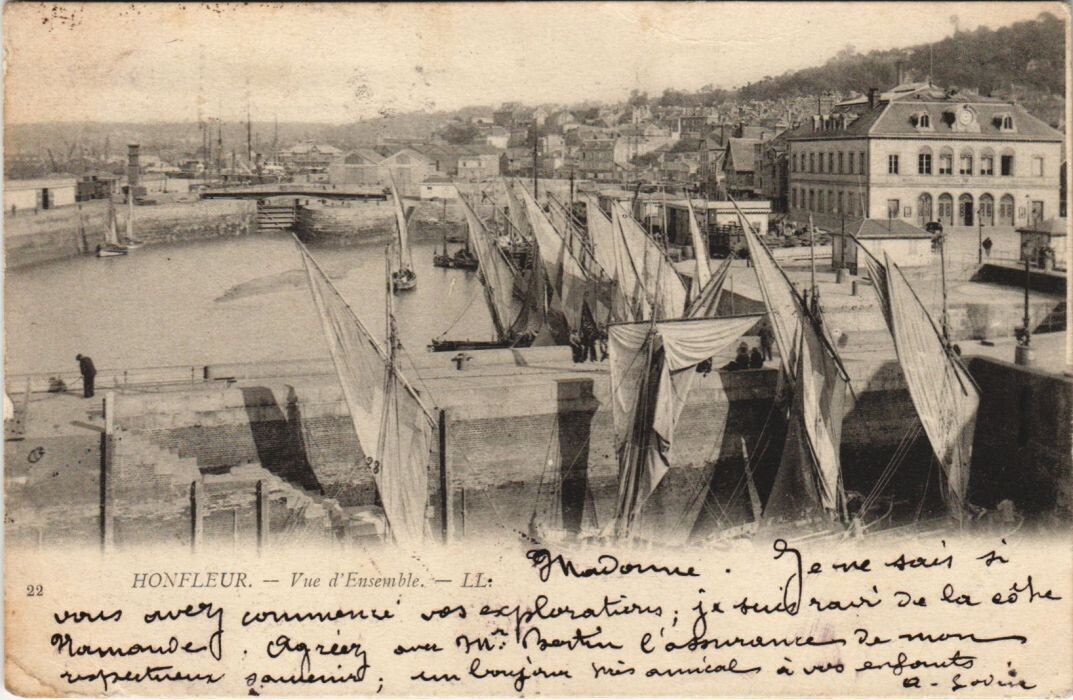 22 HONFLEUR. — Vue d'Ensemble. — LL.
Madame. Je ne sais si
vous avez commencé vos explorations; je suis ravi de la côte
Normande. Agréez avec Mr. Bertin l'assurance de mon
respectueux souvenir; un bonjour très amical à vos enfants
A.